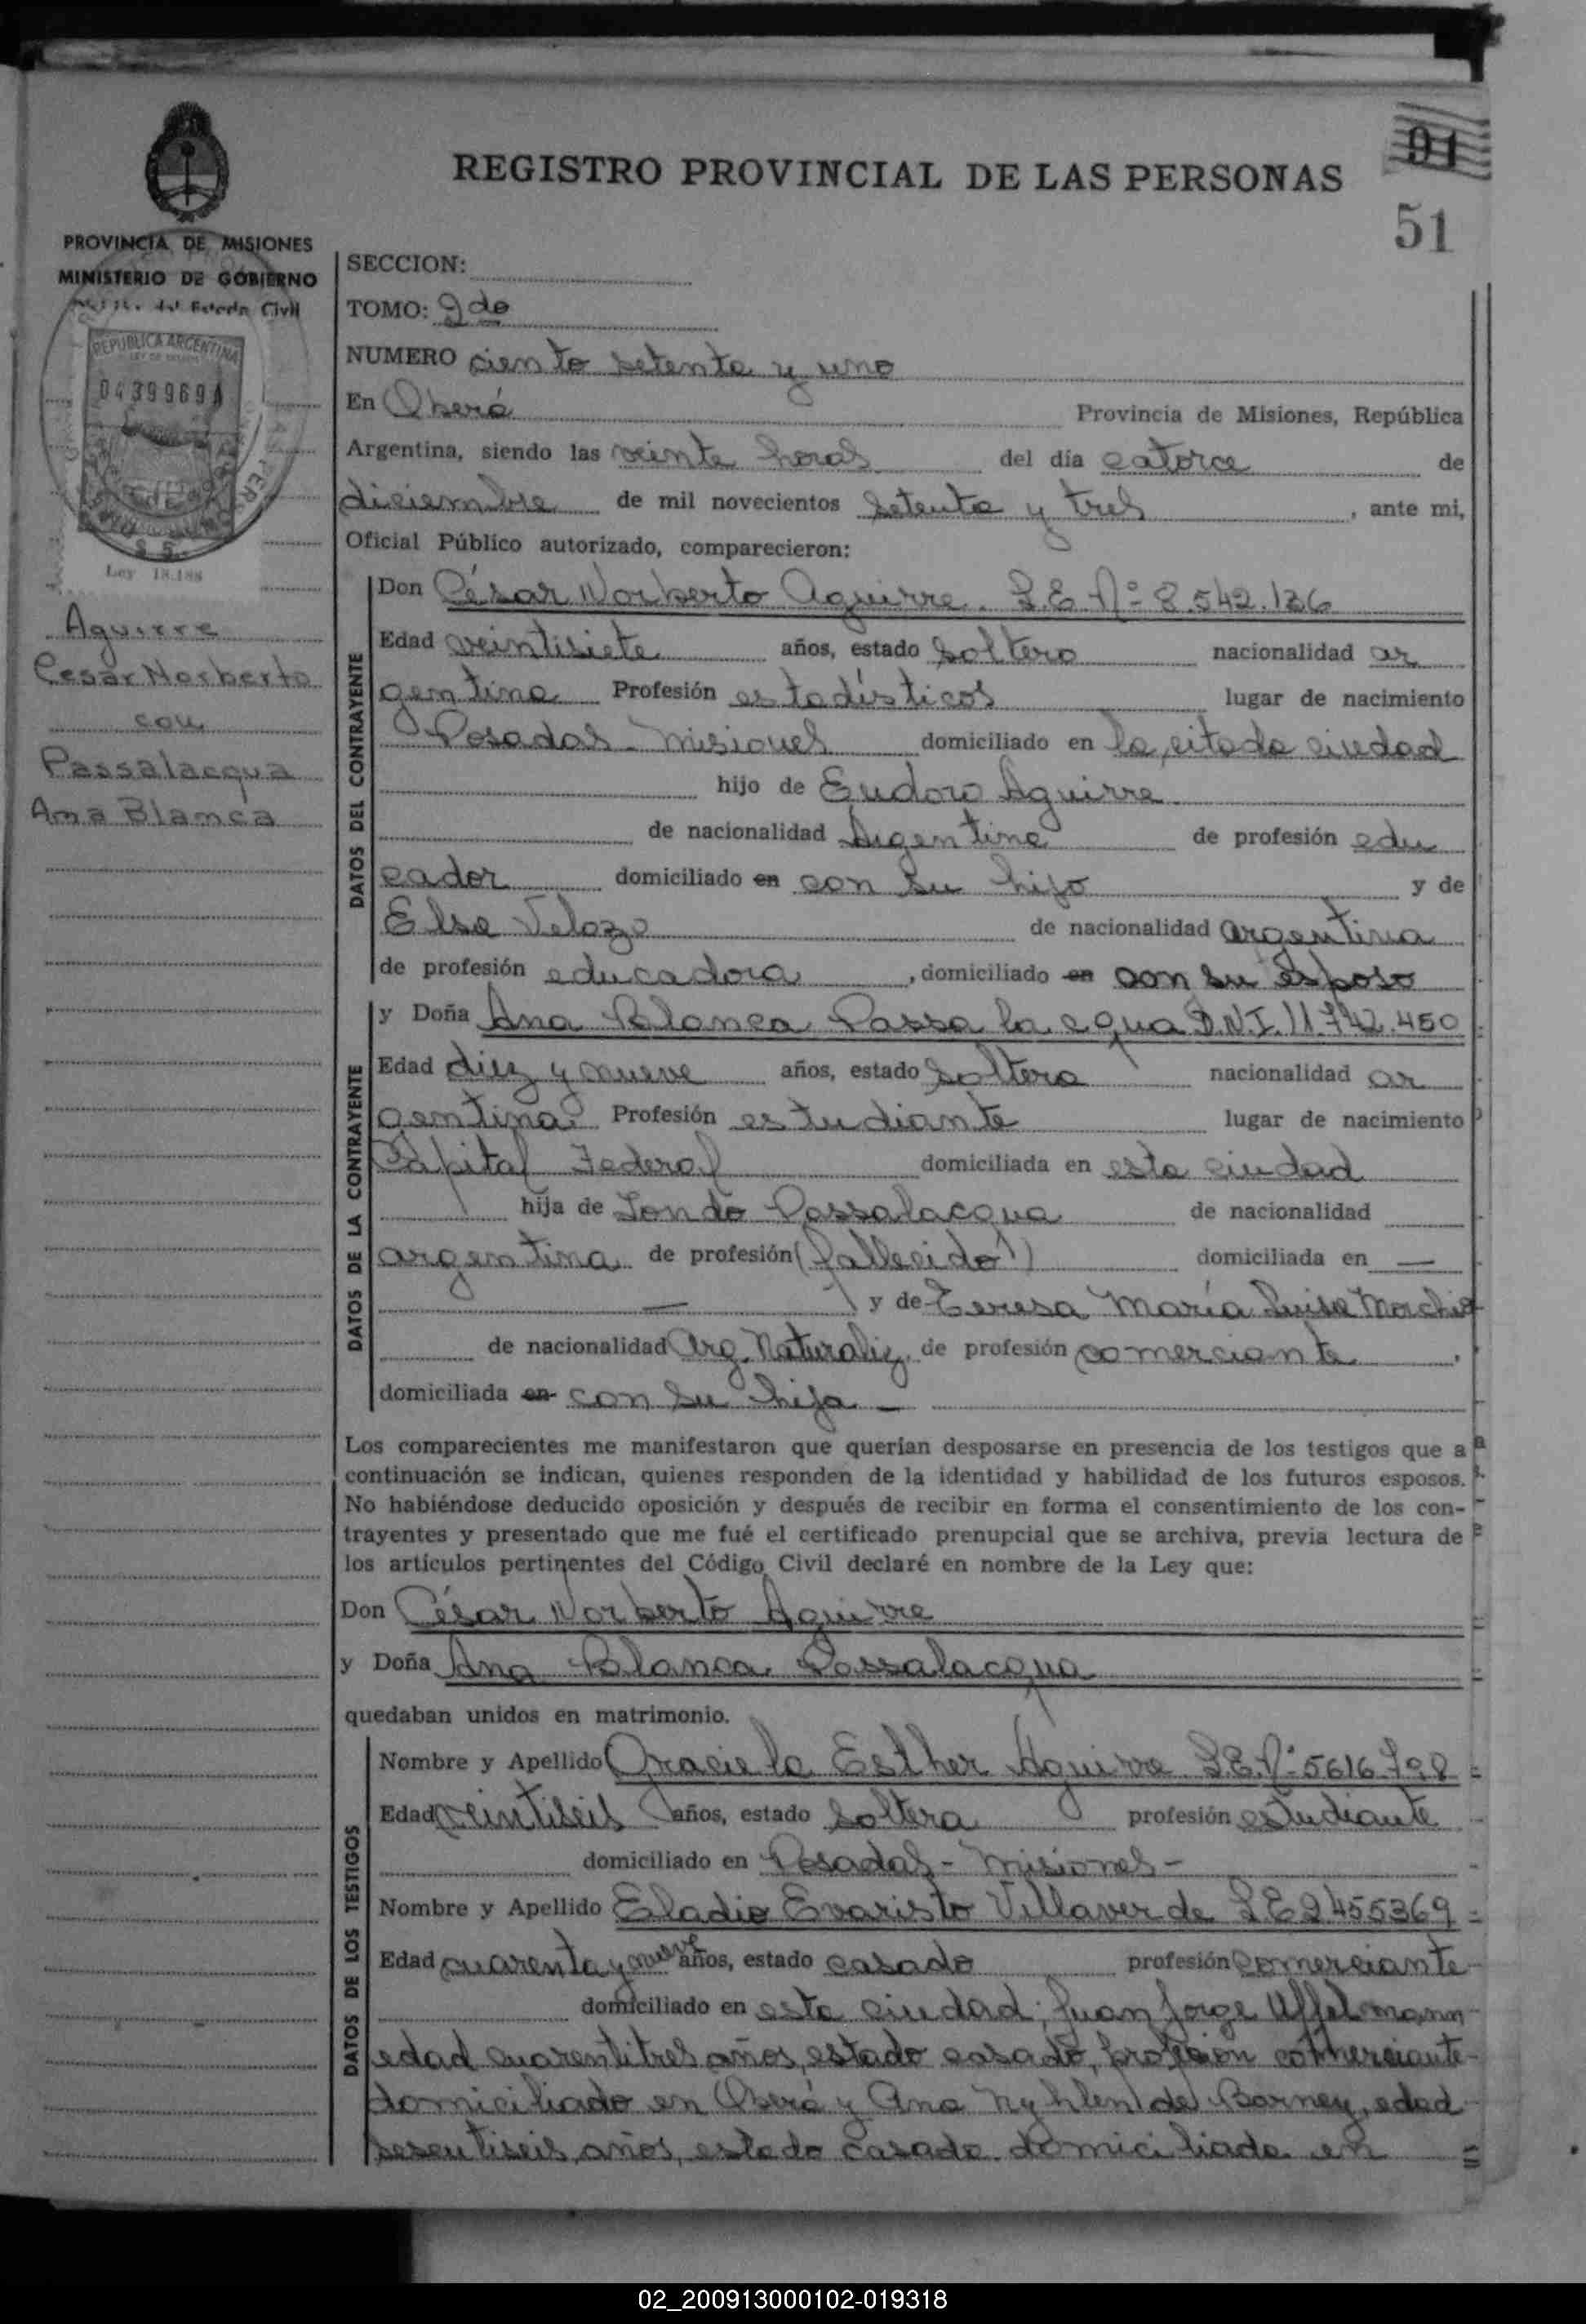 REGISTRO PROVINCIAL DE LAS PERSONAS
91
51
PROVINCIA DE MISIONES
MINISTERIO DE GOBIERNO
del Estado Civil
REPUBLICA ARGENTINA
0439969A
Ley 18.188
Aguirre
Cesar Norberto
con
Passalacqua
Ana Blanca
SECCION:
TOMO: 2do
NUMERO ciento setenta y uno
En Oberá Provincia de Misiones, República
Argentina, siendo las veinte horas del día catorce de
diciembre de mil novecientos setenta y tres, ante mi,
Oficial Público autorizado, comparecieron:
DATOS DEL CONTRAYENTE
Don César Norberto Aguirre. L.E. Nº 8.542.136
Edad veintisiete años, estado soltero nacionalidad ar
gentina Profesión estadísticos lugar de nacimiento
Posadas - Misiones domiciliado en la citada ciudad
hijo de Eudoro Aguirre
de nacionalidad Argentina de profesión edu
cador domiciliado en con su hijo y de
Elsa Velozo de nacionalidad argentina
de profesión educadora, domiciliado en con su esposo
DATOS DE LA CONTRAYENTE
y Doña Ana Blanca Passalacqua D.N.I. 11.742.450
Edad diez y nueve años, estado soltera nacionalidad ar
gentina Profesión estudiante lugar de nacimiento
Capital Federal domiciliada en esta ciudad
hija de Passalacqua de nacionalidad
argentina de profesión (fallecido) domiciliada en —
— y de Teresa María Luisa Morchio
de nacionalidad Arg. Naturaliz. de profesión comerciante,
domiciliada en con su hija -
Los comparecientes me manifestaron que querían desposarse en presencia de los testigos que a
continuación se indican, quienes responden de la identidad y habilidad de los futuros esposos.
No habiéndose deducido oposición y después de recibir en forma el consentimiento de los con-
trayentes y presentado que me fué el certificado prenupcial que se archiva, previa lectura de
los artículos pertinentes del Código Civil declaré en nombre de la Ley que:
Don César Norberto Aguirre
y Doña Ana Blanca Passalacqua
quedaban unidos en matrimonio.
DATOS DE LOS TESTIGOS
Nombre y Apellido Graciela Esther Aguirre L.E. Nº 5616798
Edad veintiseis años, estado soltera profesión estudiante
domiciliado en Posadas - Misiones -
Nombre y Apellido Eladio Evaristo Villaverde L.E 2455369
Edad cuarenta y nueve años, estado casado profesión comerciante
domiciliado en esta ciudad; Juan Jorge Uffelmann
edad cuarentitres años, estado casado, profesión comerciante
domiciliado en Oberá y Ana Nyhlen de Barney, edad
sesentiseis años, estado casada domiciliada en
02_200913000102-019318